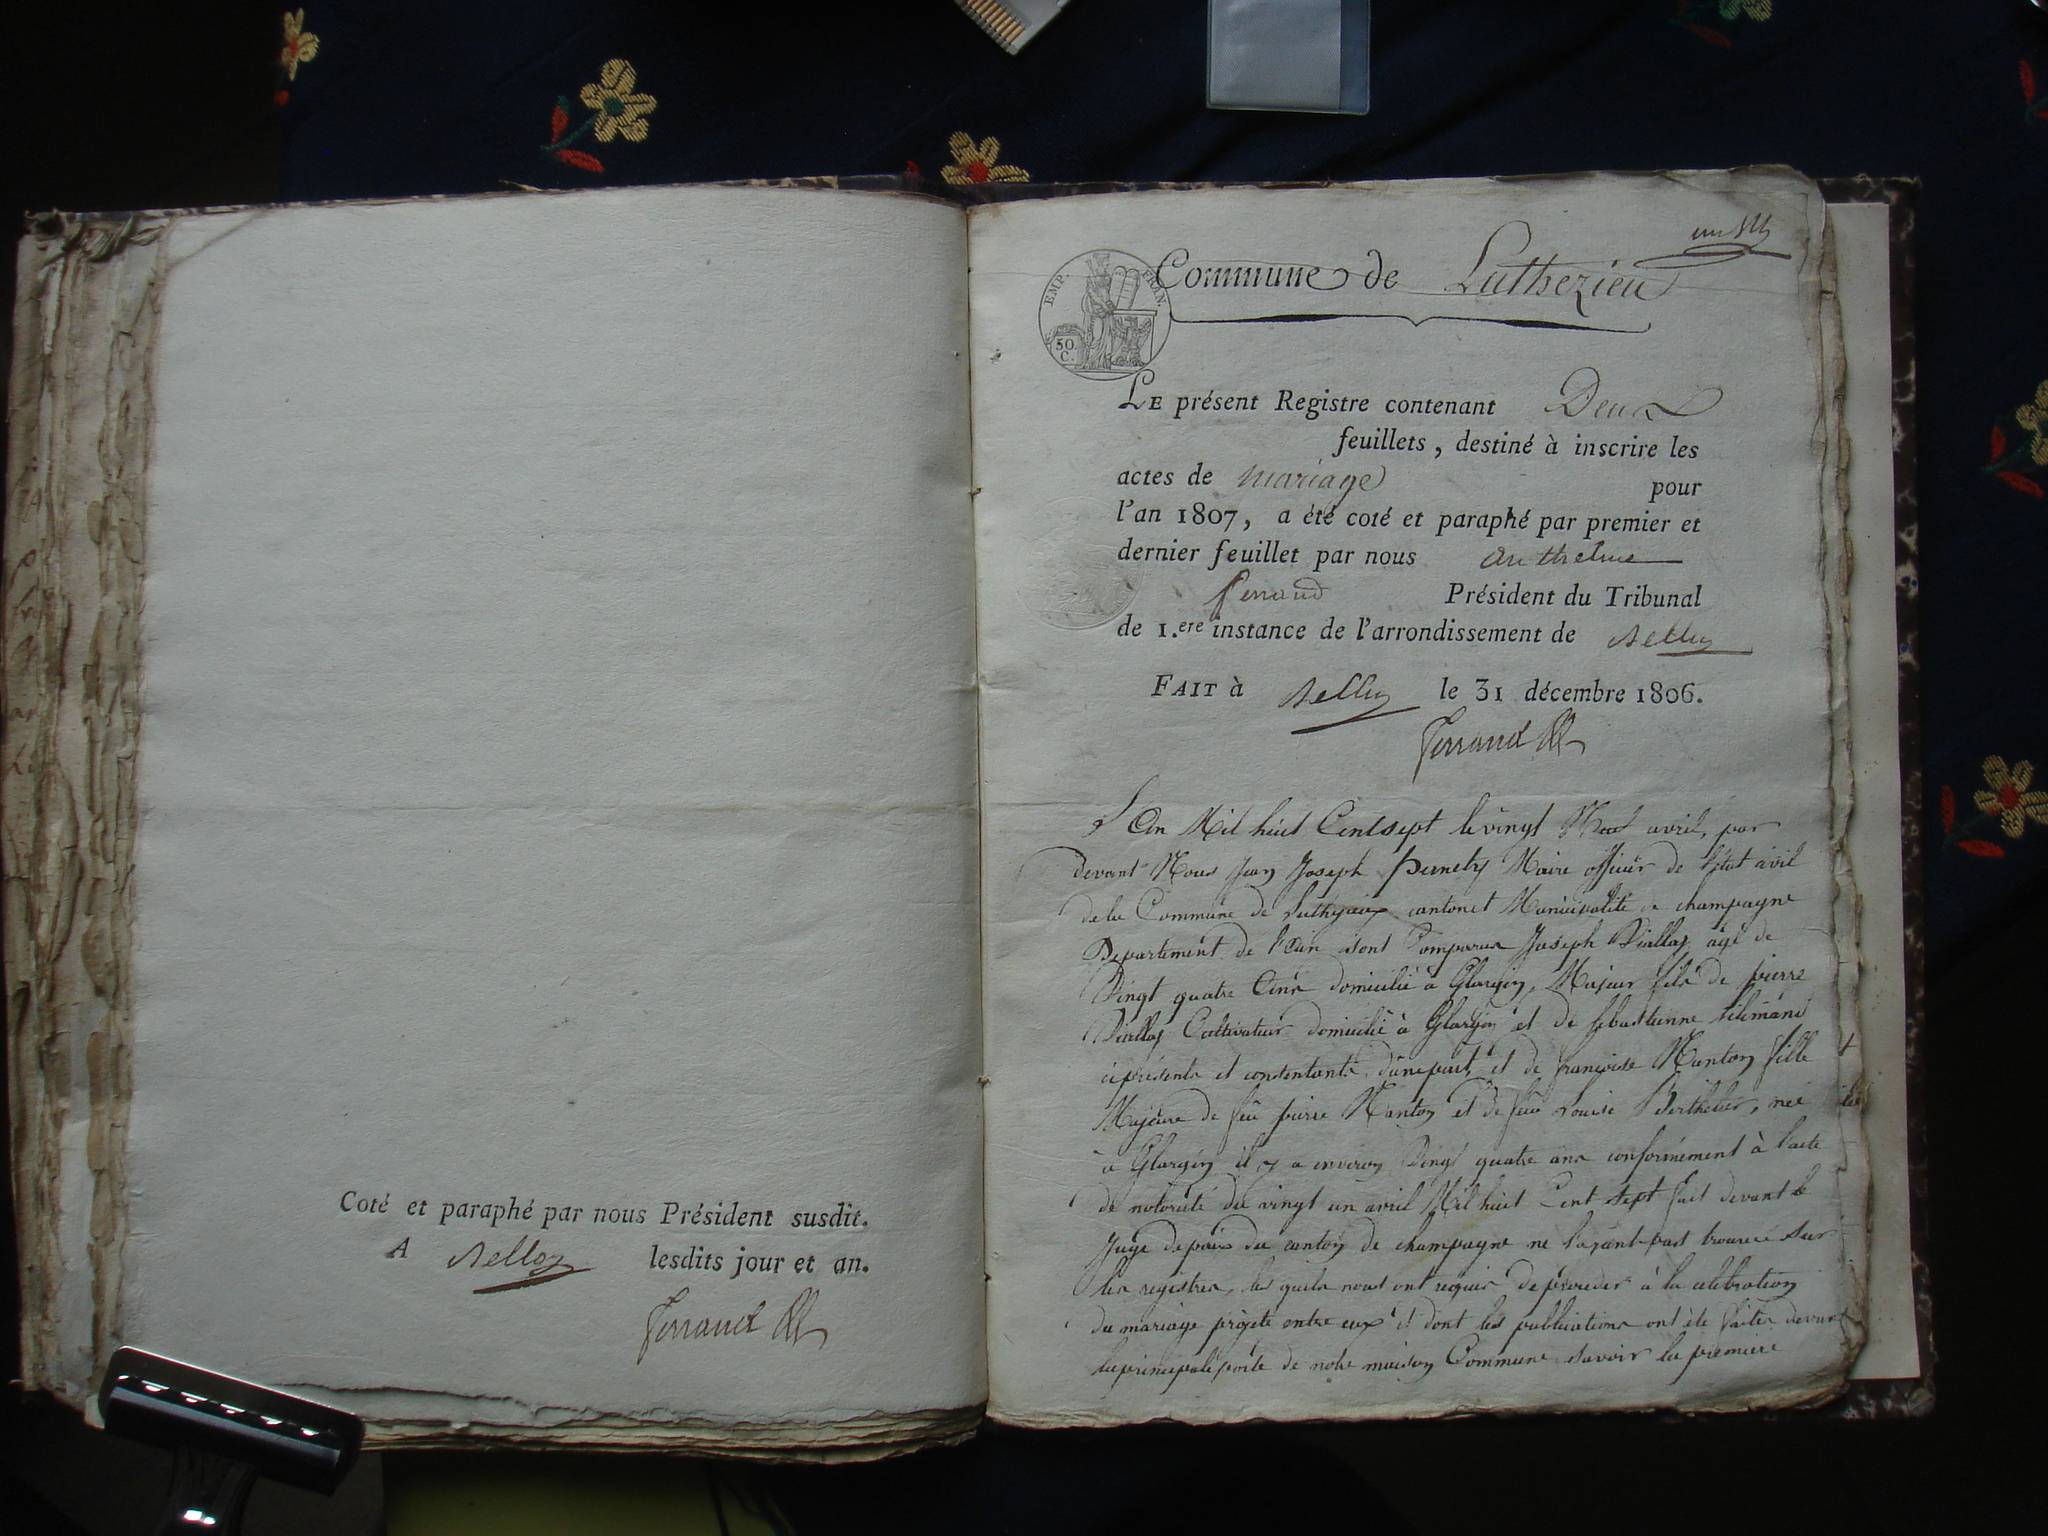 Coté et paraphé par nous Président susdit.
A Belley lesdits jour et an.
Ferrand
Commune de Luthezieu
EMP. FRAN.
50. C.
LE présent Registre contenant Deux
feuillets, destiné à inscrire les
actes de mariage pour
l'an 1807, a été coté et paraphé par premier et
dernier feuillet par nous anthelme
ferrand Président du Tribunal
de 1.ere instance de l'arrondissement de Belley
FAIT à Belley le 31 décembre 1806.
Ferrand
L'An Mil huit Cent sept le vingt Neuf avril, par
devant Nous Jean Joseph Maire officier de l'état civil
de la Commune de Luthezieux canton et Municipalité de champagne
Departement de l'ain sont Comparus Joseph Viallaz agé de
Vingt quatre Ans domicilié à Glargin, Majeur fils de pierre
Viallaz Cultivateur domicilié à Glargin et de sebastienne
ci présents et consentants d'une part, et de françoise Manton fille
Majeure de feu pierre Manton et de feue Louise Berthelier, née
à Glargin il y a environ Vingt quatre ans conformément à l'acte
de notorieté du vingt un avril Mil huit Cent sept fait devant le
Juge de paix du canton de champagne ne l'ayant pas trouvée sur
les registres, les quels nous ont requis de proceder à la celebration
du mariage projeté entre eux et dont les publications ont été faites devant
la principale porte de notre maison Commune savoir la premiere